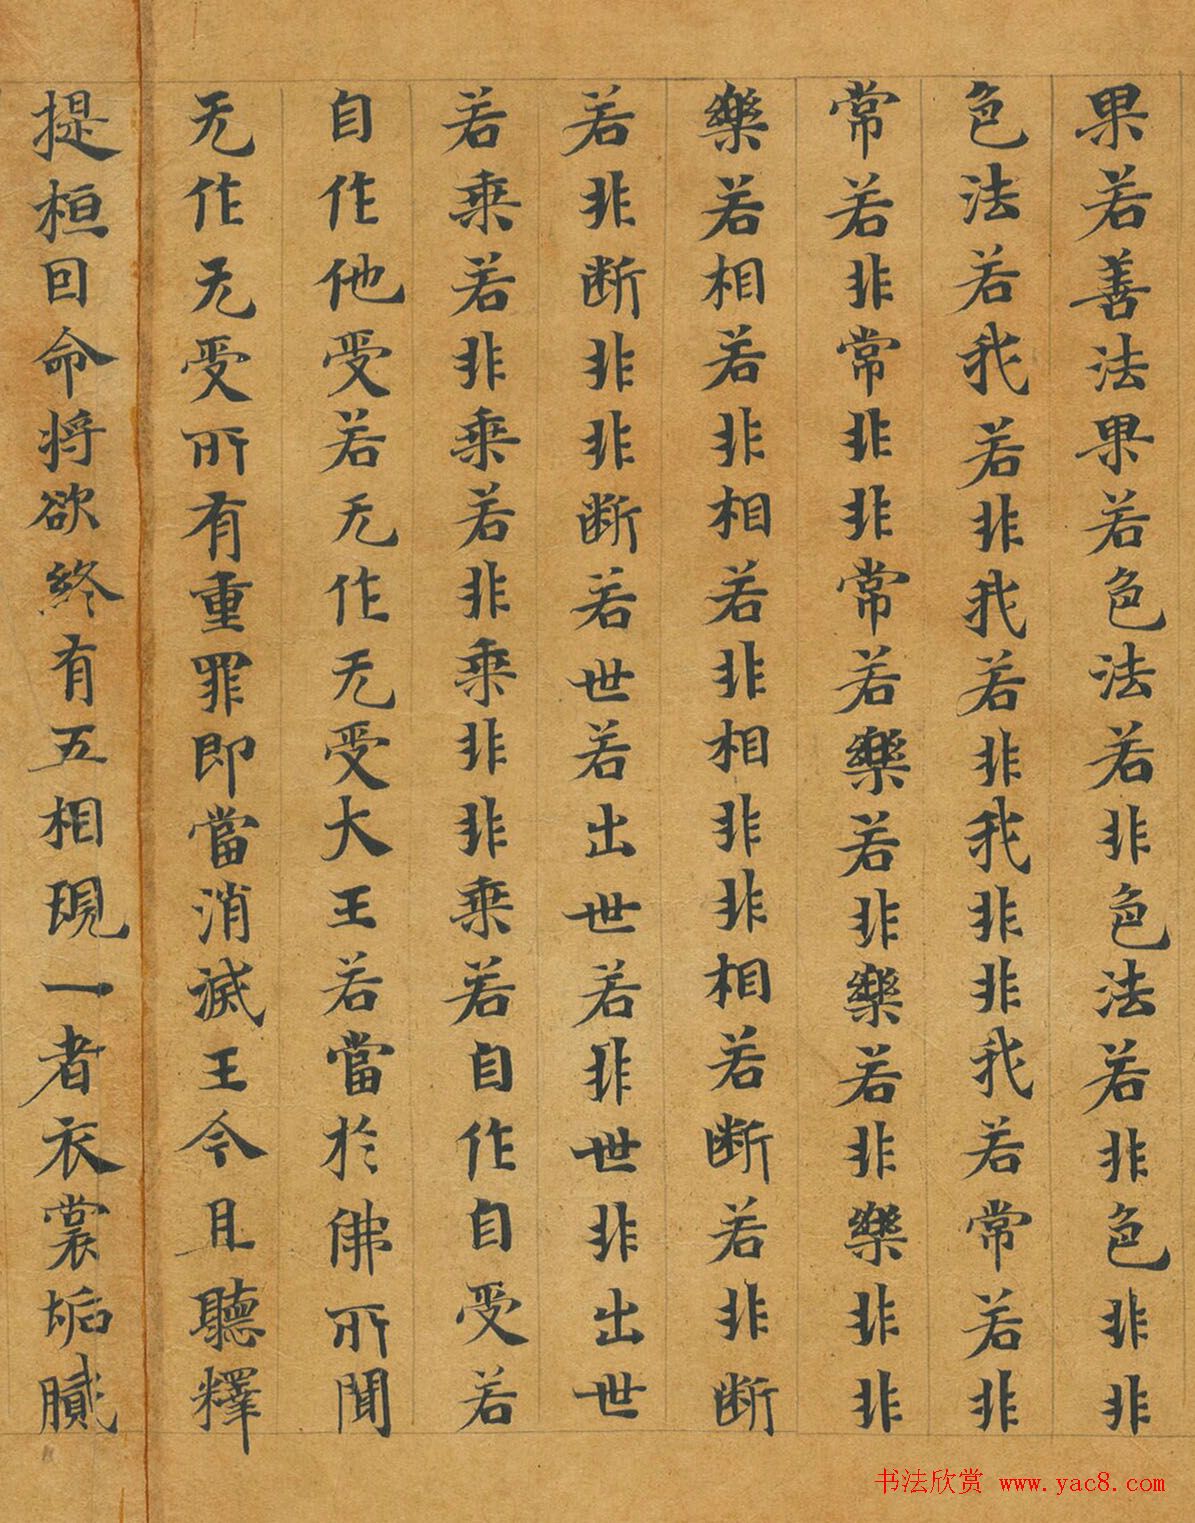 果若善法果若色法若非色法若非色非非
色法若我若非我若非我非非我若常若非
常若非常非非常若樂若非樂若非樂非非
樂若相若非相若非相非非相若斷若非斷
若非斷非非斷若世若出世若非世非出世
若乘若非乘若非乘非非乘若自作自受若
自作他受若无作无受大王若當於佛所聞
无作无受所有重罪即當消滅王今且聽釋
提桓因命將欲終有五相現一者衣裳垢膩
书法欣赏 www.yac8.com